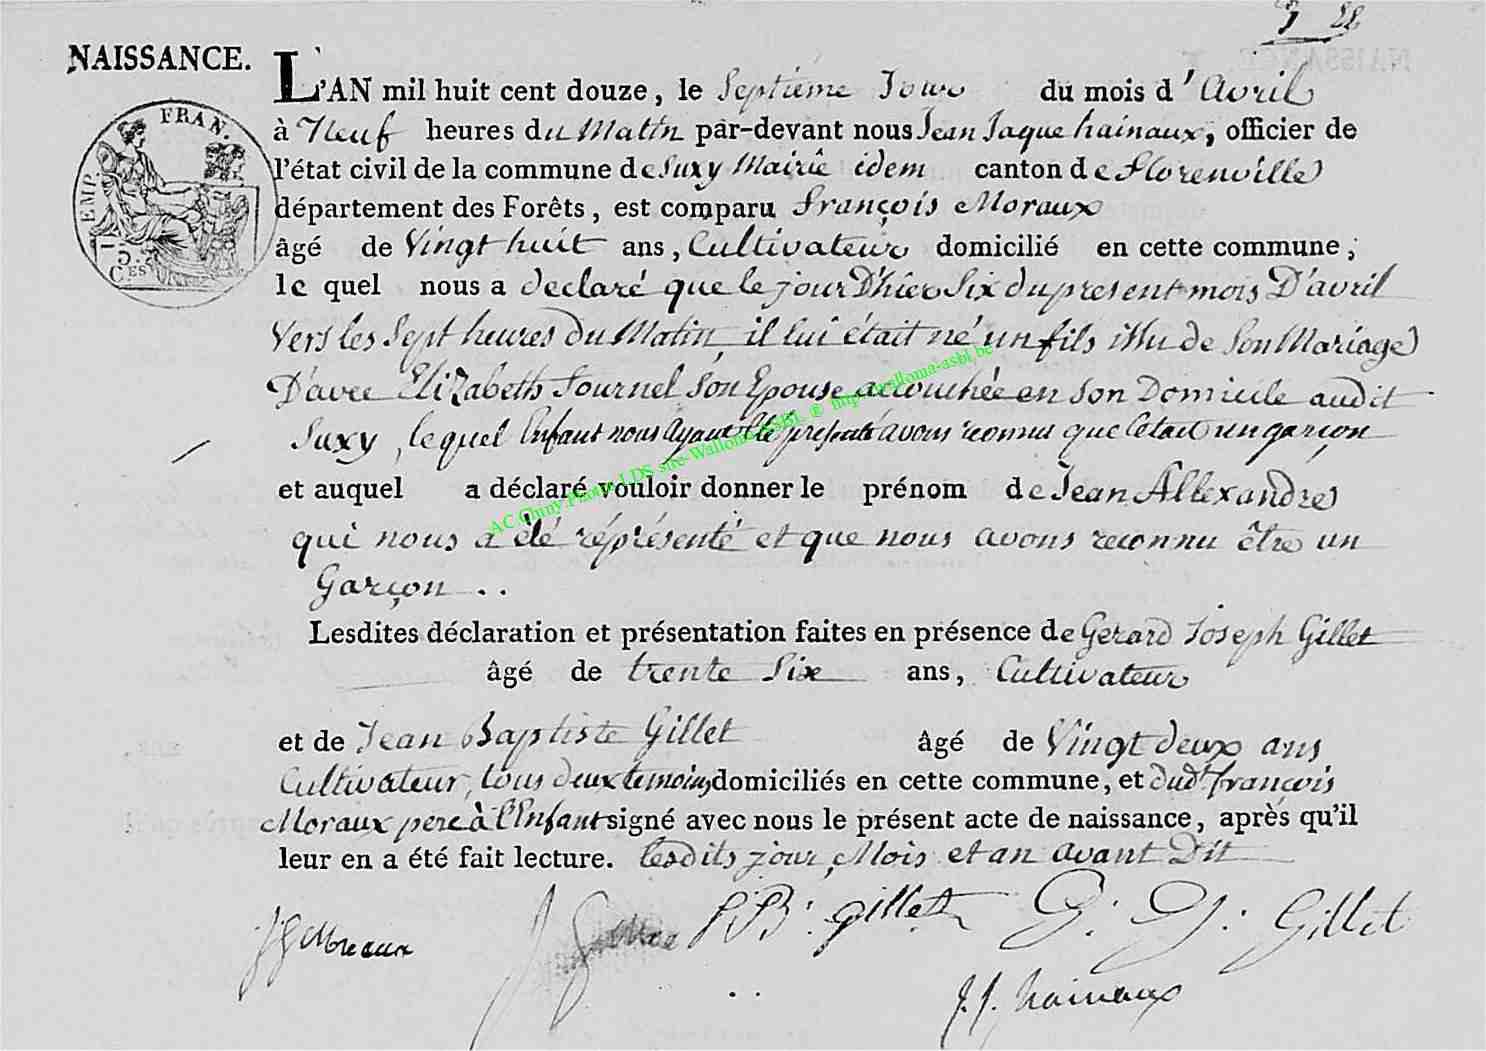 NAISSANCE.
L'AN mil huit cent douze, le Septiéme Jour du mois d'Avril
à Neuf heures du Matin par-devant nous Jean Jaque hainaux, officier de
l'état civil de la commune de Suxy Mairie idem canton de Florenville
département des Forêts, est comparu François Moraux
âgé de Vingt huit ans, Cultivateur domicilié en cette commune,
le quel nous a declaré que le jour D'hier Six du present mois D'avril
vers les Sept heures du Matin, il lui était né un fils issu de Son Mariage
D'avec Elizabeth Fournel Son Epouse accouchée en Son Domicile audit
Suxy, lequel Enfant nous ayant été presenté avons reconnu que c'était un garçon
et auquel a déclaré vouloir donner le prénom de Jean Allexandre
qui nous a été réprésenté et que nous avons reconnu être un
Garçon ..
Lesdites déclaration et présentation faites en présence de Gerard Joseph Gillet
âgé de trente Six ans, Cultivateur
et de Jean Baptiste Gillet âgé de Vingt deux ans
Cultivateur, tous deux temoins domiciliés en cette commune, et dudt françois
Moraux pere à l'Enfant signé avec nous le présent acte de naissance, après qu'il
leur en a été fait lecture. lesdits jour, Mois et an avant Dit
Moreaux
gillet
G: J: Gillet
J. J. hainaux
EMP. FRAN.
5. CES
AC Chiny Photos LDS site Wallonia ASBL ® http://wallonia-asbl.be